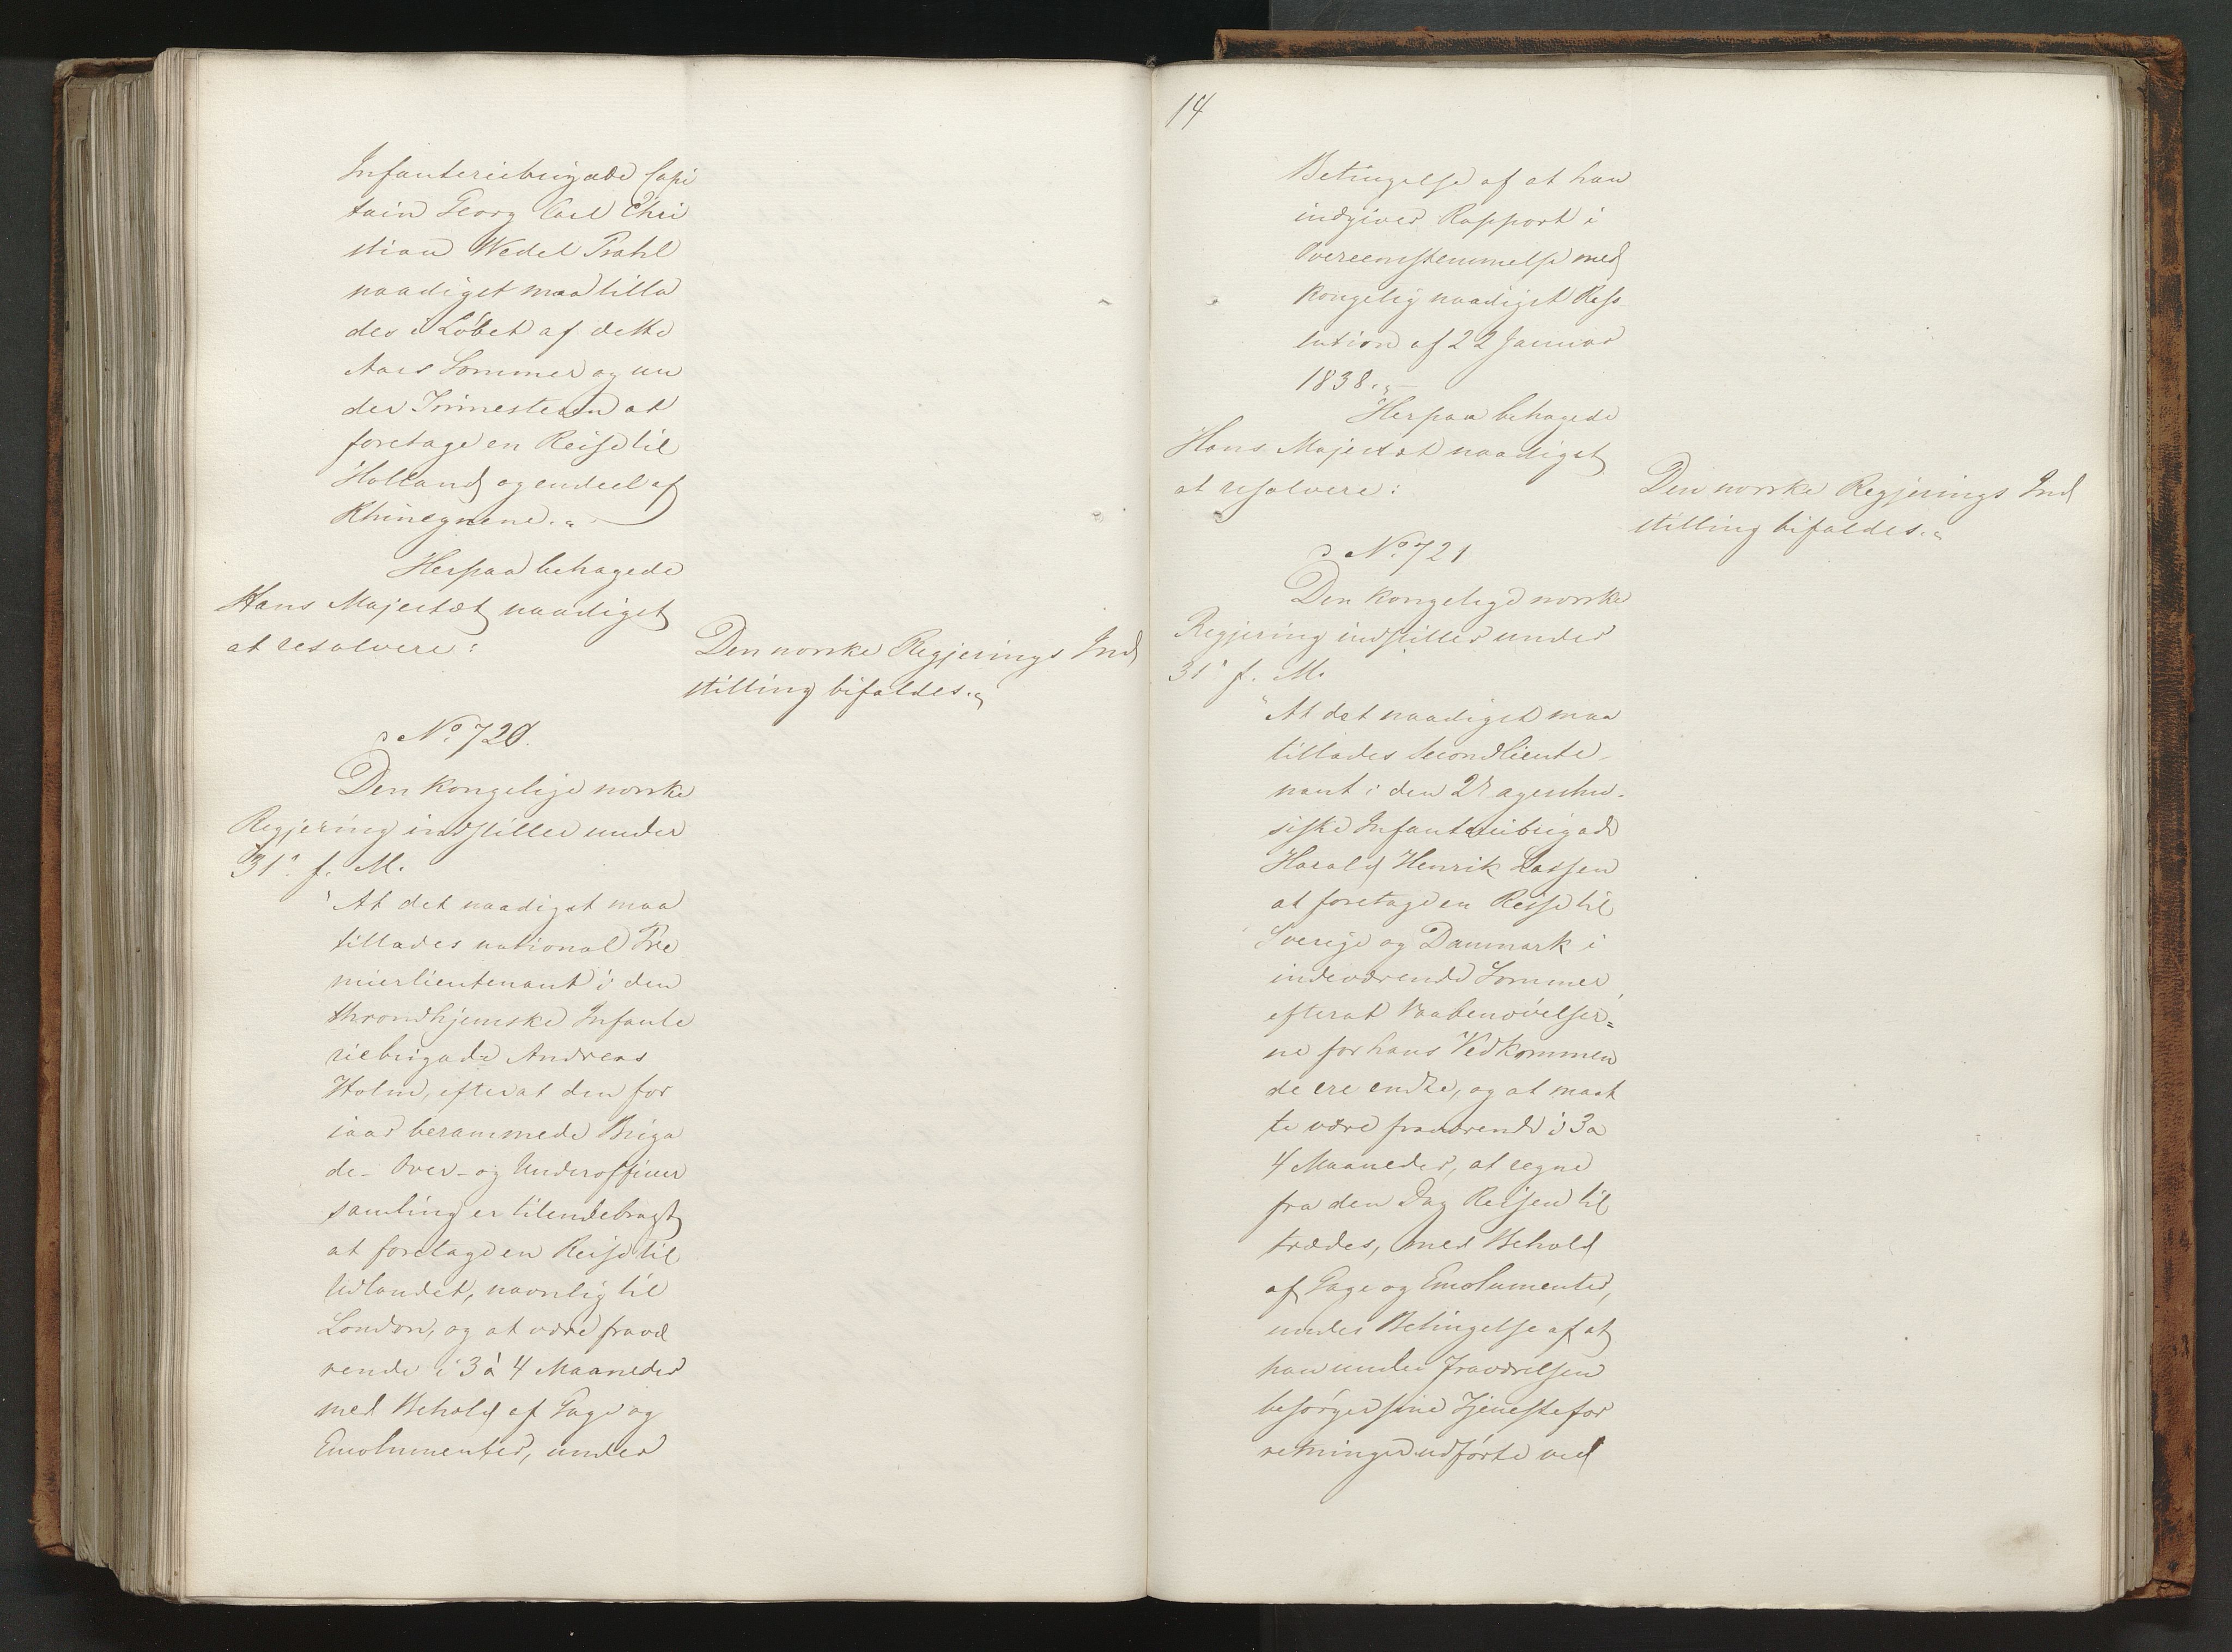 Infanteriebrigade Capi
tain Georg Carl Chri
stian Wedel Prahl
naadigst maa tilla
des i Løbet af dette
Aars Sommer og un
der at
foretage en Reise til
Holland og endeel af
Rhinegnene.„
Herpaa behagede
Hans Majestæt naadigst
at resolvere:
Den norske Regjerings Ind
stilling bifaldes.„
No. 720.
Den kongelige norske
Regjering indstiller under
31. f. M.
"At det naadigst maa
tillades national Pre
mierlieutenant i den
throndhjemske Infante
riebrigade Andreas
Holm, efterat den for
iaar berammede Briga
de- Over- og Underofficeer
samling er tilendebragt
at foretage en Reise til
Udlandet, navnlig til
London, og at være fravæ
rende i 3 à 4 Maaneder
med Behold af Gage og
Emolumenter, under
14
Betingelse af at han
indgiver Rapport i
Overeenstemmelse med
kongelig naadigst Reso
lution af 22 Januar
1838.„
Herpaa behagede
Hans Majestæt naadigst
at resolvere:
Den norske Regjerings Ind
stilling bifaldes.„
No. 721
Den kongelige norske
Regjering indstiller under
31. f. M.
"At det naadigst maa
tillades Secondlieute-
nant i den 2den agershu-
siske Infanteriebrigade
Harald Henrik Lassen
at foretage en Reise til
Sverige og Danmark i
indeværende Sommer,
efterat Vaabenøvelser=
ne for hans Vedkommen
de ere endte, og at maat
te være fraværende i 3 a
4 Maaneder, at regne
fra den Dag Reisen til
trædes, med Behold
af Gage og Emolumenter,
under Betingelse af at
han under Fraværelsen
besørger sine Tjenestefor
retninger udførte ved